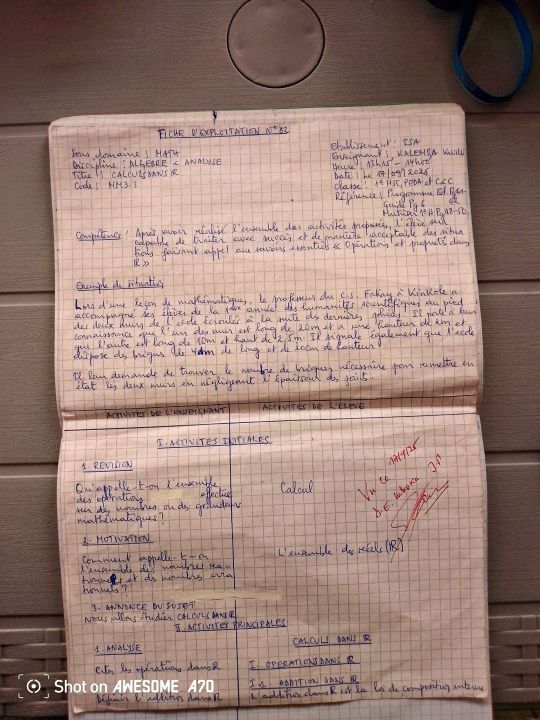 FICHE D'EXPLOITATION N° 02
Sous domaine : MATH
Discipline : ALGEBRE & ANALYSE
Titre : CALCULS DANS R
Code : MM3.1
Etablissement : ISA
Enseignant : KALEMBA
Heure : 13h15 - 14h00
Date : Le 17/09/2025
Classe : 1e HSC, PEDA et C&C
Référence : Programme Ed.
Guide Pg 6
Compétence : Après avoir réalisé l'ensemble des activités proposées, l'élève sera
capable de traiter avec succès et de manière acceptable des situa
tions faisant appel aux savoirs essentiels « Opérations et propriétés dans
R »
Exemple de situation
Lors d'une leçon de mathématiques, le professeur du C.S. à Kinkole a
accompagné ses élèves de la 1ère année des humanités scientifiques au pied
des deux murs de l'école écroulés à la suite des dernières pluies. Il porte à leur
connaissance que l'un des murs est long de 20m et a une hauteur de 2m et
que l'autre est long de 10m et haut de 2,5m. Il signale également que l'école
dispose des briques de 4dm de long et de 20cm de hauteur.
Il leur demande de trouver le nombre de briques nécessaire pour remettre en
état les deux murs en négligeant l'épaisseur des joints.
ACTIVITES DE L'ENSEIGNANT
ACTIVITES DE L'ELEVE
I. ACTIVITES INITIALES
1. REVISION
Qu'appelle-t-on l'ensemble
des opérations effectuées
sur des nombres ou des grandeurs
mathématiques ?
Calcul
Vu ce 17/9/25
2. MOTIVATION
Comment appelle-t-on
l'ensemble des nombres ra-
tionnels et des nombres irra
tionnels ?
L'ensemble des réels (R)
3. ANNONCE DU SUJET
Nous allons étudier CALCULS DANS R
II. ACTIVITES PRINCIPALES
1. ANALYSE
CALCULS DANS R
Citez les opérations dans R
I. OPERATIONS DANS R
I.1 ADDITION DANS R
Définir l'addition dans R
L'addition dans R est la loi de composition interne
Shot on AWESOME A70